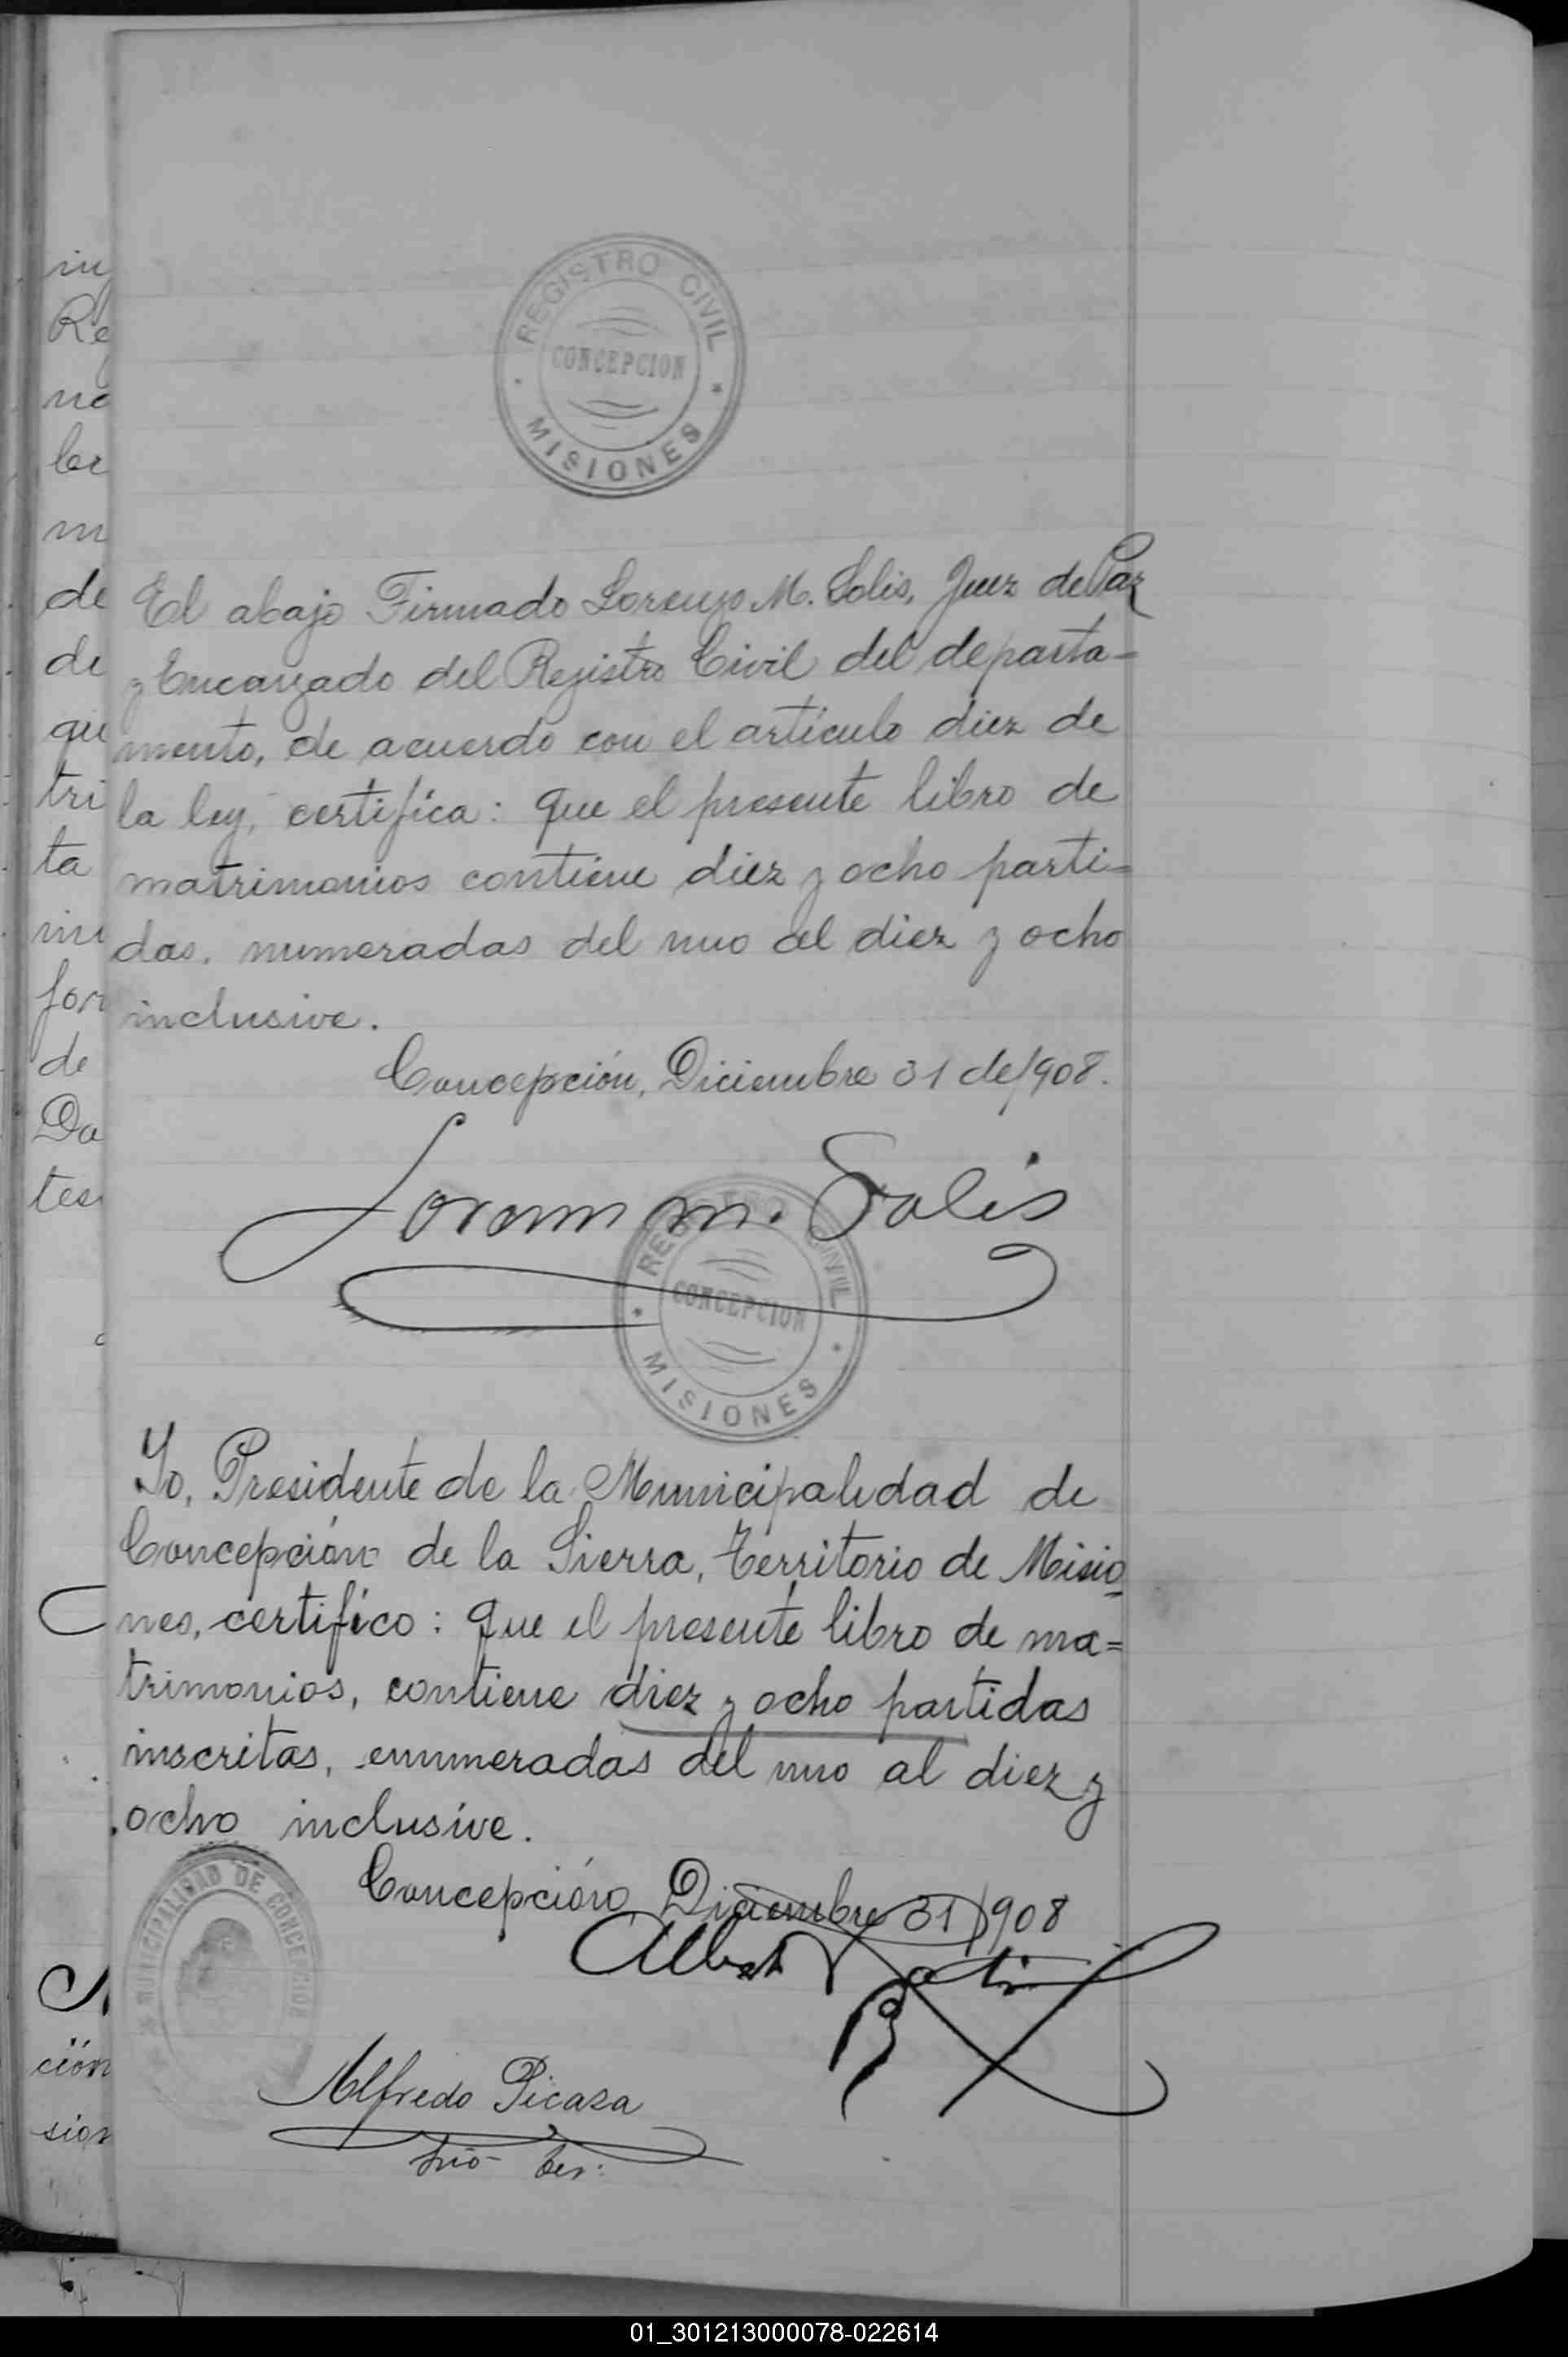 REGISTRO CIVIL
CONCEPCION
MISIONES
El abajo Firmado Lorenzo M. Solis, Juez de Paz
y Encargado del Registro Civil del departa-
mento, de acuerdo con el artículo diez de
la ley, certifica: que el presente libro de
matrimonios contiene diez y ocho parti-
das, numeradas del uno al diez y ocho
inclusive.
Concepción, Diciembre 31 de 1908.
Lorenzo M. Solis
REGISTRO CIVIL
CONCEPCION
MISIONES
Yo, Presidente de la Municipalidad de
Concepción de la Sierra, Territorio de Misio-
nes, certifico: que el presente libro de ma=
trimonios, contiene diez y ocho partidas
inscritas, enumeradas del uno al diez y
ocho inclusive.
Concepción Diciembre 31/908
MUNICIPALIDAD DE CONCEPCION
Alfredo Picasa
01_301213000078-022614